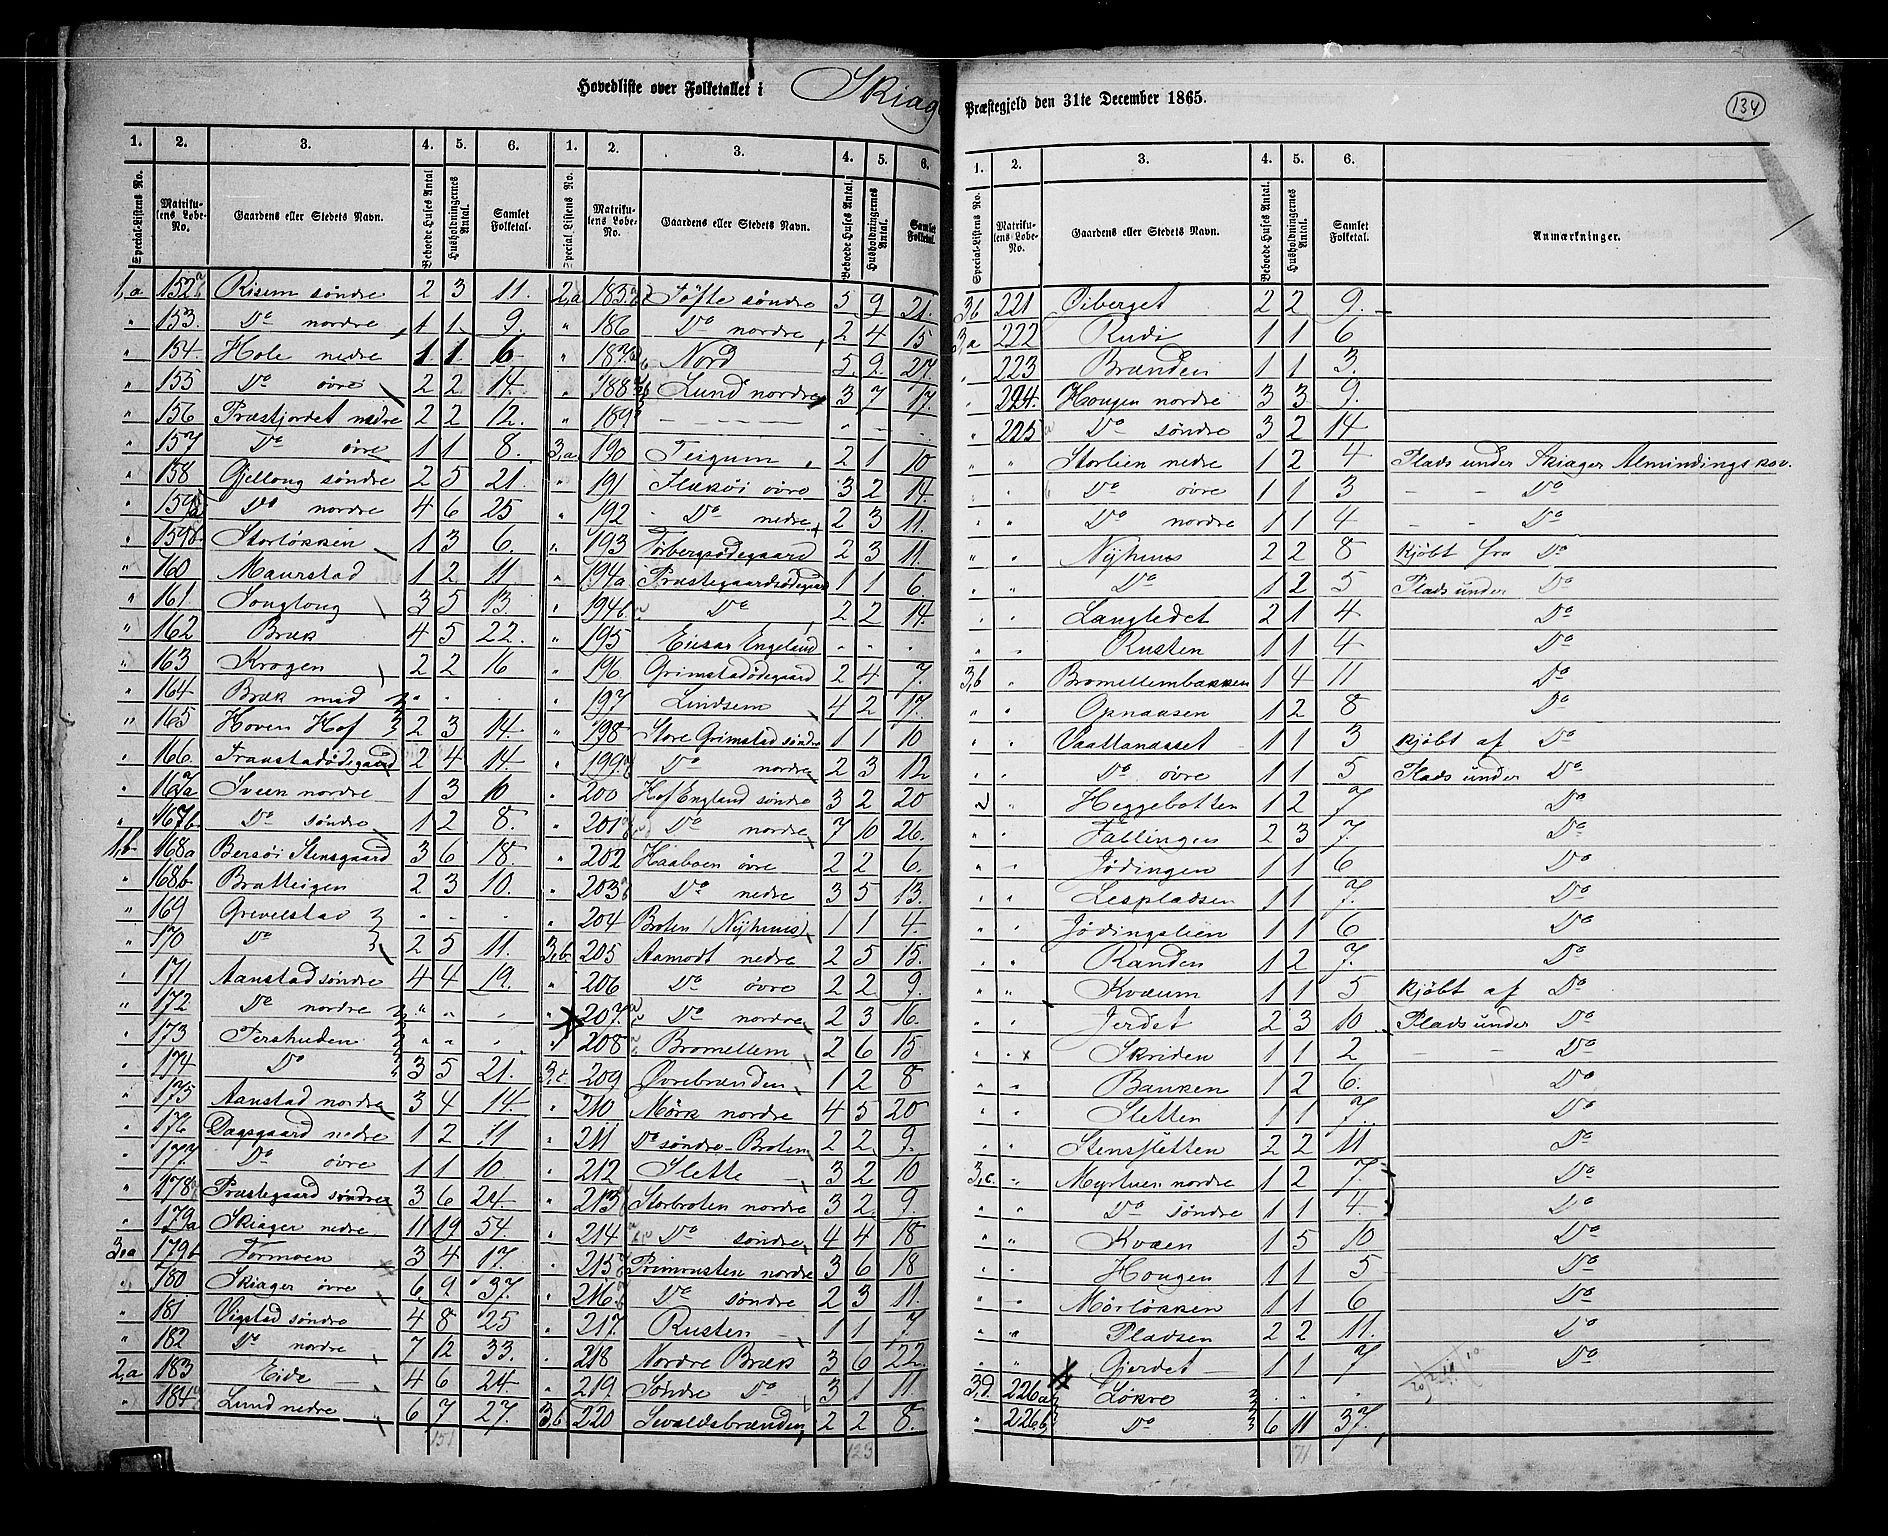 Hovedliste over Folketallet i Skiag
Præstegjeld den 31te December 1865.
134
1. 2. 3. 4. 5. 6. 1. 2. 3. 4. 5. 6.
Special-Listens No. Matrikulens Løbe-No. Gaardens eller Stedets Navn. Beboede Huses Antal Husholdningernes Antal. Samlet Folketal. Special Listens No. Matrikulens Løbe-No. Gaardens eller Stedets Navn. Beboede Huses Antal. Husholdningernes Antal. Samlet Folketal.
1,a 152 Risem søndre 2 3 11.
" 153. Do nordre 1 1. 9.
" 154. Hole nedre 1 1. 6
" 155 Do øvre 2 2 14.
" 156 Præstjordet nedre 2 2 12.
" 157 Do øvre 1 1 8.
" 158 Gjellong søndre 2 5 21.
" 159a Do nordre 4 6 25
" 159b Storløkken 1 3 6.
" 160 Maurstad 1 2 11
" 161 Songlong 3 5 13.
" 162 Bræk 4 5 22.
" 163 Krogen 2 2 16
" 164 Bræk med " . .
" 165 Hoven Hof 2 3 14.
" 166. Transtadødegaard 2 4 14.
" 167a Sveen nordre 1 3 10
" 167b. Do søndre 1 2 8.
1b 168a Bersøi Stensgaard 3 6 18
" 168b Bratteigen 2 3 10.
" 169 Grevelstad . . .
" 170 Do 2 5 11.
" 171 Aanstad søndre 4 4 19.
" 172 Do nordre " " .
" 173 Fershuden " " .
" 174 Do 3 5 21.
" 175 Aanstad nordre 3 4 14.
" 176 Dagsgaard nedre 1 2 11
" 177. Do øvre 1 1 10
" 178 Præstegaard søndre 3 6 24.
" 179a Skiager nedre 11 19 54.
3,a 179b Formoen 3 4 17.
" 180 Skiager øvre 6 9 37.
" 181 Vigstad søndre 4 8 25
" 182 Do nordre 7 12 33.
2,a 183 Eide 4 6 24.
" 184 Lund nedre 6 7 27.
151
2,a 185. Tøfte søndre 5 9 21.
" 186 Do nordre 2 4 15
" 187. Nord 5 9. 27
" 188 Lund nordre 3 7 17.
" 189 — — — — " . .
3,a 190 Teigum 2 1 10
" 191 Flækøi øvre 3 2 14.
" 192 Do nedre 2 3 11.
" 193 Torbergsødegaard 2 3 11.
" 194a Præstegaardsødegaard 1 1 6.
" 194b. Do 2 2 14.
" 195 Eisar Engeland . . .
" 196 Grimstadødegaard 2 4 7.
" 197 Lindsem 4 2 17.
" 198 Store Grimstad søndre 1 1 10
" 199. Do nordre 2 3 12
" 200 Hof England søndre 3 2 20
" 201 Do nordre 7 10 26.
" 202 Haaboen øvre 2 2 6.
" 203 Do nedre 3 5 13.
" 204 Broten (Nyhuus) 1 1 4.
3,b. 205 Aamodt nedre 2 5 15.
" 206 Do øvre 2 2 9.
" 207. Do nordre 2 3 16.
" 208 Bromellem 2 6 15
3,c 209 Øvrebrænden 1 2 8
" 210 Mørk nordre 4 5 20
" 211 Do søndre - Broten 2 2 9.
" 212 Slette 3 2 10
" 213 Storbroten nordre 3 2 9.
" 214 Do søndre 4 4 18
" 215 Primrusten nordre 3 6 18
" 216 Do søndre 2 3 11.
" 217. Rusten 1 1 7
" 218 Nordre Bræk 3 6 22.
" 219 Søndre Do 3 1 11
3,b 220 Sevaldsbrænden 2 2 8.
123
1. 2. 3. 4. 5. 6.
Special-Listens No. Matrikulens Løbe-No. Gaardens eller Stedets Navn. Beboede Huses Antal. Husholdningernes Antal. Samlet Folketal. Anmærkninger.
3b 221 Øiberget 2 2 9.
3,a 222 Rudi 1 1 6
" 223 Brænden 1 1 3.
" 224. Hougen nordre 3 3 9.
" 225 Do søndre 3 2 14
" " Storlien nedre 1 2 4 Plads under Skiager Almindingskov.
" " Do øvre 1 1 3 — — Do
" " Do nordre 1 1 4 — — Do
" " Nyhuus 2 2 8 kjøbt fra Do
" " Do 1 2 5 Plads under Do
" " Langledet 2 1 4 Do
" " Rusten 1 1 4 Do
3,b " Bromellembakken 1 4 11 Do
" " Opnaasen 1 2 8 Do
" " Vaattanasset 1 1 3 kjøbt af Do
" " Do øvre 1 1 5 Plads under Do
" " Heggebotten 1 2 7 Do
" " Fallingen 2 3 7 Do
" " Jødingen 1 1 6 Do
" " Lespladsen 1 1 7. Do
" " Jødingslien 1 1 6 Do
" " Randen 1 2 7. Do
" " Kvæum 1 1 5 kjøbt af Do
" " Jerdet 2 3 10 Plads under Do
" " Skriden 1 1 2 — — Do
" " Banken 1 2 6. Do
" " Sletten 1 1 7. Do
" " Stensletten 2 2 11 Do
3,c. " Myrluen nordre 1 2 7. Do
" " Do søndre 1 1 4. Do
" " Kvæen 1 5 10 Do
" " Hougen 1 1 5 Do
" " Mørløkken 1 1 6 Do
" " Pladsen 2 2 11. Do
" " Gjerdet 1 1 7 Do
3,d. 226a Løkre . . .
" 226b Do 6 11 37.
71